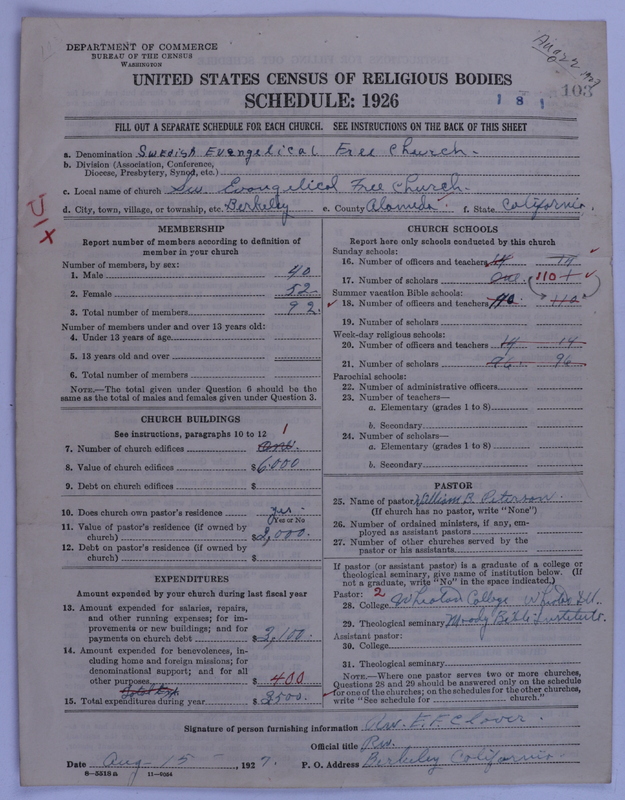 DEPARTMENT OF COMMERCE
BUREAU OF THE CENSUS
WASHINGTON
Aug 22 1927
103
UNITED STATES CENSUS OF RELIGIOUS BODIES
SCHEDULE: 1926
1 8 1
FILL OUT A SEPARATE SCHEDULE FOR EACH CHURCH. SEE INSTRUCTIONS ON THE BACK OF THIS SHEET
a. Denomination Swedish Evangelical Free Church.
b. Division (Association, Conference, Diocese, Presbytery, Synod, etc.)
c. Local name of church Sw. Evangelical Free Church.
d. City, town, village, or township, etc. Berkeley e. County Alameda f. State California.
MEMBERSHIP
Report number of members according to definition of member in your church
Number of members, by sex:
1. Male 40
2. Female 52
3. Total number of members 92
Number of members under and over 13 years old:
4. Under 13 years of age
5. 13 years old and over
6. Total number of members
NOTE.—The total given under Question 6 should be the same as the total of males and females given under Question 3.
CHURCH BUILDINGS
See instructions, paragraphs 10 to 12
7. Number of church edifices one. 1
8. Value of church edifices $6000
9. Debt on church edifices $
10. Does church own pastor's residence yes
(Yes or No
11. Value of pastor's residence (if owned by church) $2,000.
12. Debt on pastor's residence (if owned by church) $
EXPENDITURES
Amount expended by your church during last fiscal year
13. Amount expended for salaries, repairs, and other running expenses; for improvements or new buildings; and for payments on church debt $3,100.
14. Amount expended for benevolences, including home and foreign missions; for denominational support; and for all other purposes $400
15. Total expenditures during year $3500.
CHURCH SCHOOLS
Report here only schools conducted by this church
Sunday schools:
16. Number of officers and teachers 14 14
17. Number of scholars 110
Summer vacation Bible schools:
18. Number of officers and teachers 110. 110
19. Number of scholars
Week-day religious schools:
20. Number of officers and teachers 14 14
21. Number of scholars 96. 96
Parochial schools:
22. Number of administrative officers
23. Number of teachers—
a. Elementary (grades 1 to 8)
b. Secondary
24. Number of scholars—
a. Elementary (grades 1 to 8)
b. Secondary
PASTOR
25. Name of pastor William B. Peterson.
(If church has no pastor, write "None")
26. Number of ordained ministers, if any, employed as assistant pastors
27. Number of other churches served by the pastor or his assistants
If pastor (or assistant pastor) is a graduate of a college or theological seminary, give name of institution below. (If not a graduate, write "No" in the space indicated.)
Pastor: 2
28. College Wheaton College Wheaton Ill.
29. Theological seminary Moody Bible Institute.
Assistant pastor:
30. College
31. Theological seminary
NOTE.—Where one pastor serves two or more churches, Questions 28 and 29 should be answered only on the schedule for one of the churches; on the schedules for the other churches, write "See schedule for church."
Signature of person furnishing information Rev. E. F. Clover.
Official title Rev.
Date Aug-15-, 1927. P. O. Address Berkeley California.
8-5518a 11-9054